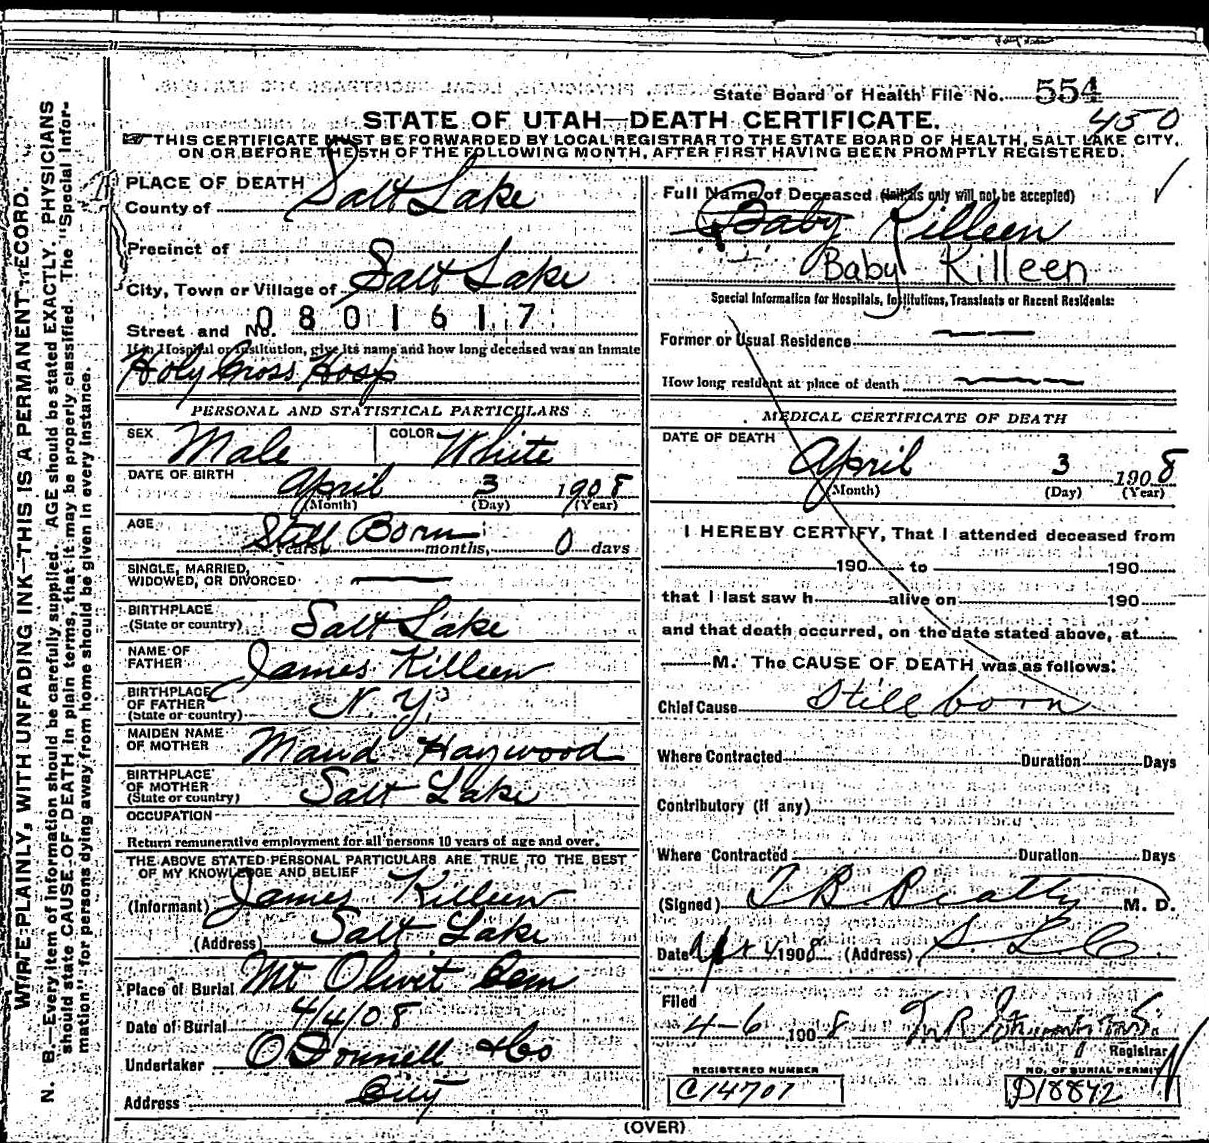 State Board of Health File No. 554
450
STATE OF UTAH—DEATH CERTIFICATE.
THIS CERTIFICATE MUST BE FORWARDED BY LOCAL REGISTRAR TO THE STATE BOARD OF HEALTH, SALT LAKE CITY,
ON OR BEFORE THE 5TH OF THE FOLLOWING MONTH, AFTER FIRST HAVING BEEN PROMPTLY REGISTERED.
WRITE PLAINLY, WITH UNFADING INK—THIS IS A PERMANENT RECORD.
N. B. Every item of information should be carefully supplied. AGE should be stated EXACTLY. PHYSICIANS
should state CAUSE OF DEATH in plain terms, that it may be properly classified. The "Special Infor-
mation" for persons dying away from home should be given in every instance.
PLACE OF DEATH
County of Salt Lake
Precinct of
City, Town or Village of Salt Lake
Street and No. 0801617
If in Hospital or Institution, give its name and how long deceased was an inmate
Holy Cross Hosp
PERSONAL AND STATISTICAL PARTICULARS
SEX Male COLOR White
DATE OF BIRTH April 3 1908
(Month) (Day) (Year)
AGE Still Born
years, months, 0 days
SINGLE, MARRIED,
WIDOWED, OR DIVORCED
BIRTHPLACE
(State or country) Salt Lake
NAME OF
FATHER James Killeen
BIRTHPLACE
OF FATHER
(State or country) N. Y.
MAIDEN NAME
OF MOTHER Maud Haywood
BIRTHPLACE
OF MOTHER
(State or country) Salt Lake
OCCUPATION
Return remunerative employment for all persons 10 years of age and over.
THE ABOVE STATED PERSONAL PARTICULARS ARE TRUE TO THE BEST
OF MY KNOWLEDGE AND BELIEF
(Informant) James Killeen
(Address) Salt Lake
Place of Burial Mt Olivit Cem
Date of Burial 4/4/08
Undertaker O'Donnell & Co
Address City
Full Name of Deceased (Initials only will not be accepted)
Baby Killeen
Baby Killeen
Special Information for Hospitals, Institutions, Transients or Recent Residents:
Former or Usual Residence
How long resident at place of death
MEDICAL CERTIFICATE OF DEATH
DATE OF DEATH
April 3 1908
(Month) (Day) (Year)
I HEREBY CERTIFY, That I attended deceased from
190 to 190
that I last saw h alive on 190
and that death occurred, on the date stated above, at
M. The CAUSE OF DEATH was as follows:
Chief Cause Still born
Where Contracted Duration Days
Contributory (if any)
Where Contracted Duration Days
(Signed) T B Beatty M. D.
Date Apr 4 1908 (Address) S. L. C.
Filed
4-6 1908
Registrar
REGISTERED NUMBER
C14701
NO. OF BURIAL PERMIT
D18842
(OVER)